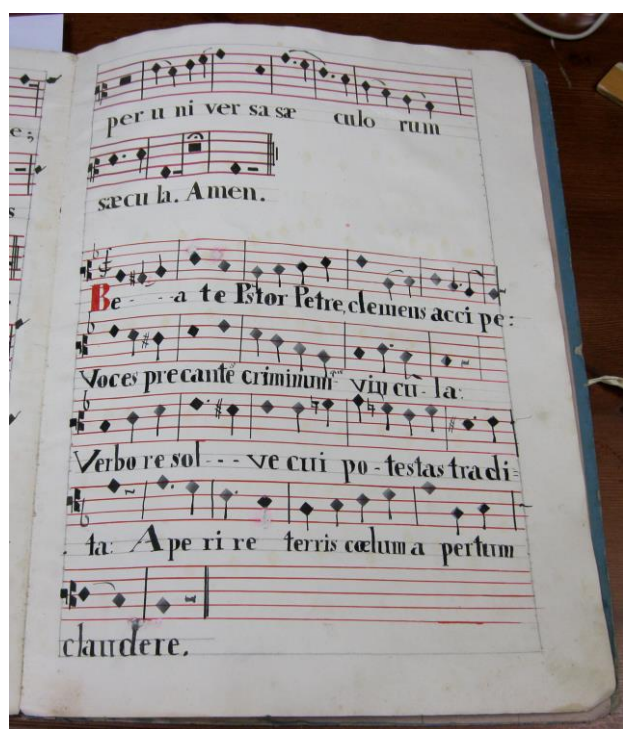 per u ni ver sa sæ culo rum
sæcu la. Amen.
Be - - a te Pstor Petre, clemens acci pe:
Voces precantē criminum vin cu - la:
Verbo re sol - - - ve cui po - testas tradi =
ta: Ape ri re terris cœlum a pertum
claudere.
e;
s